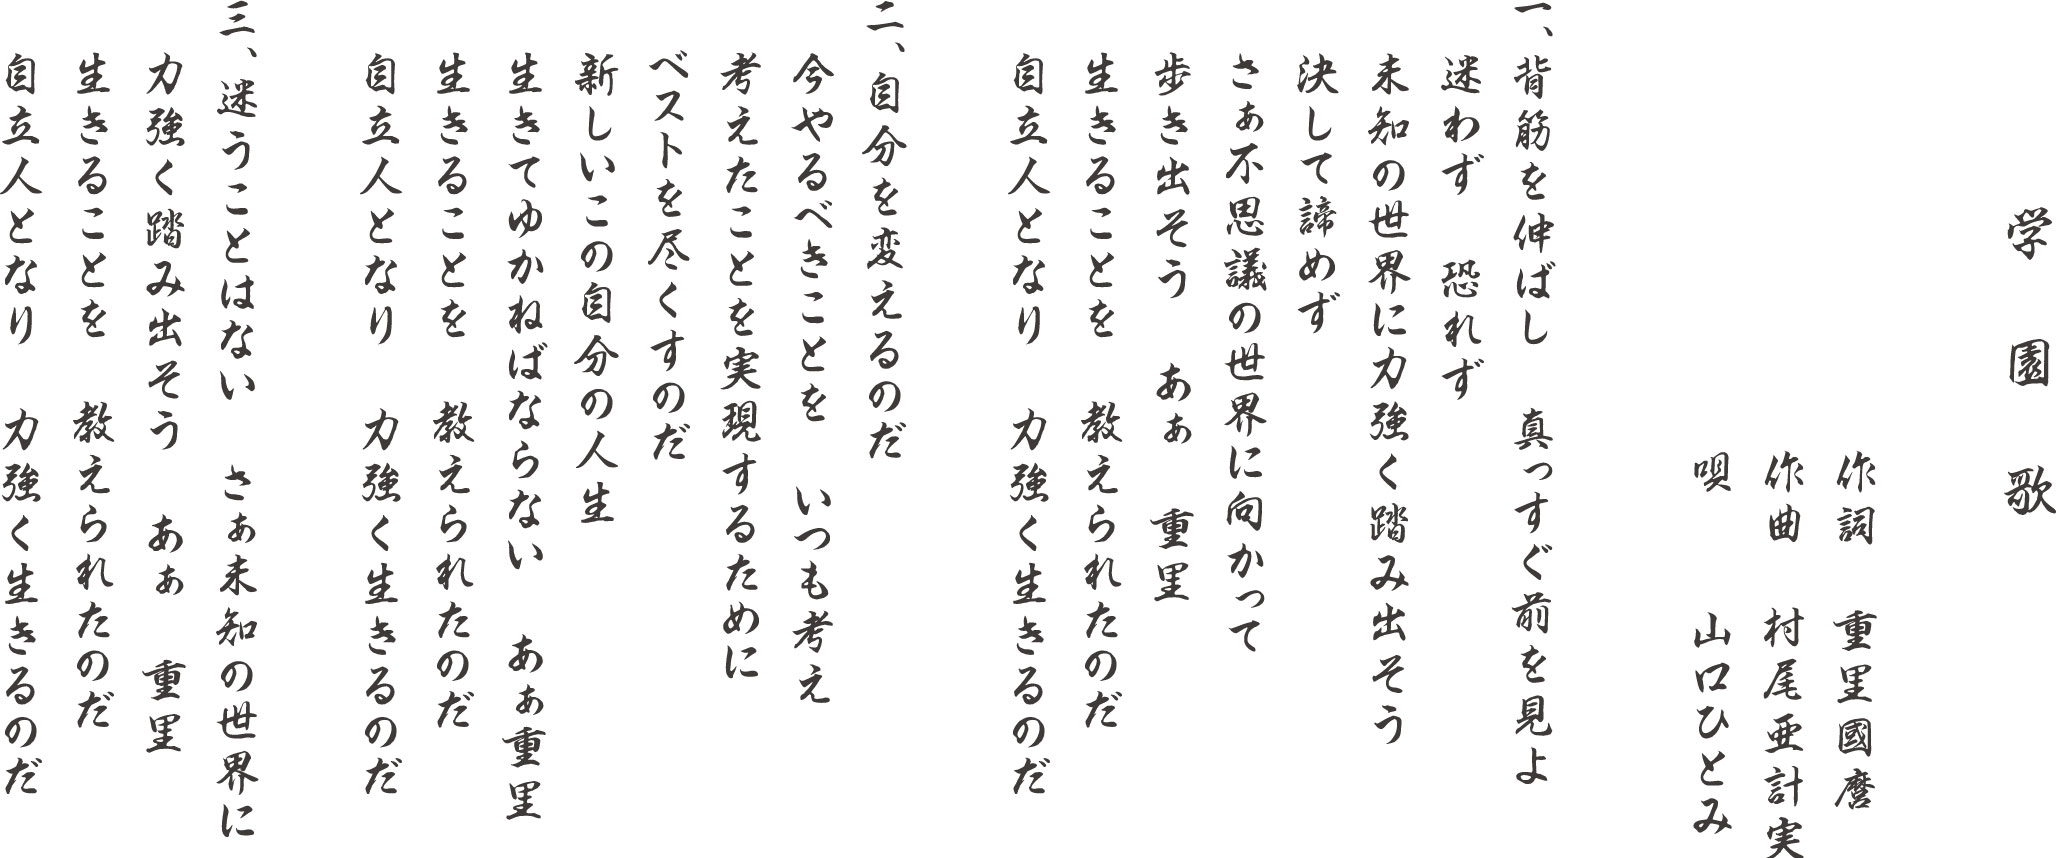 学園歌
作詞 重里國麿
作曲 村尾亜計実
唄 山口ひとみ
一、背筋を伸ばし 真っすぐ前を見よ
迷わず 恐れず
未知の世界に力強く踏み出そう
決して諦めず
さぁ不思議の世界に向かって
歩き出そう あぁ 重里
生きることを 教えられたのだ
自立人となり 力強く生きるのだ
二、自分を変えるのだ
今やるべきことを いつも考え
考えたことを実現するために
ベストを尽くすのだ
新しいこの自分の人生
生きてゆかねばならない あぁ重里
生きることを 教えられたのだ
自立人となり 力強く生きるのだ
三、迷うことはない さぁ未知の世界に
力強く踏み出そう あぁ 重里
生きることを 教えられたのだ
自立人となり 力強く生きるのだ